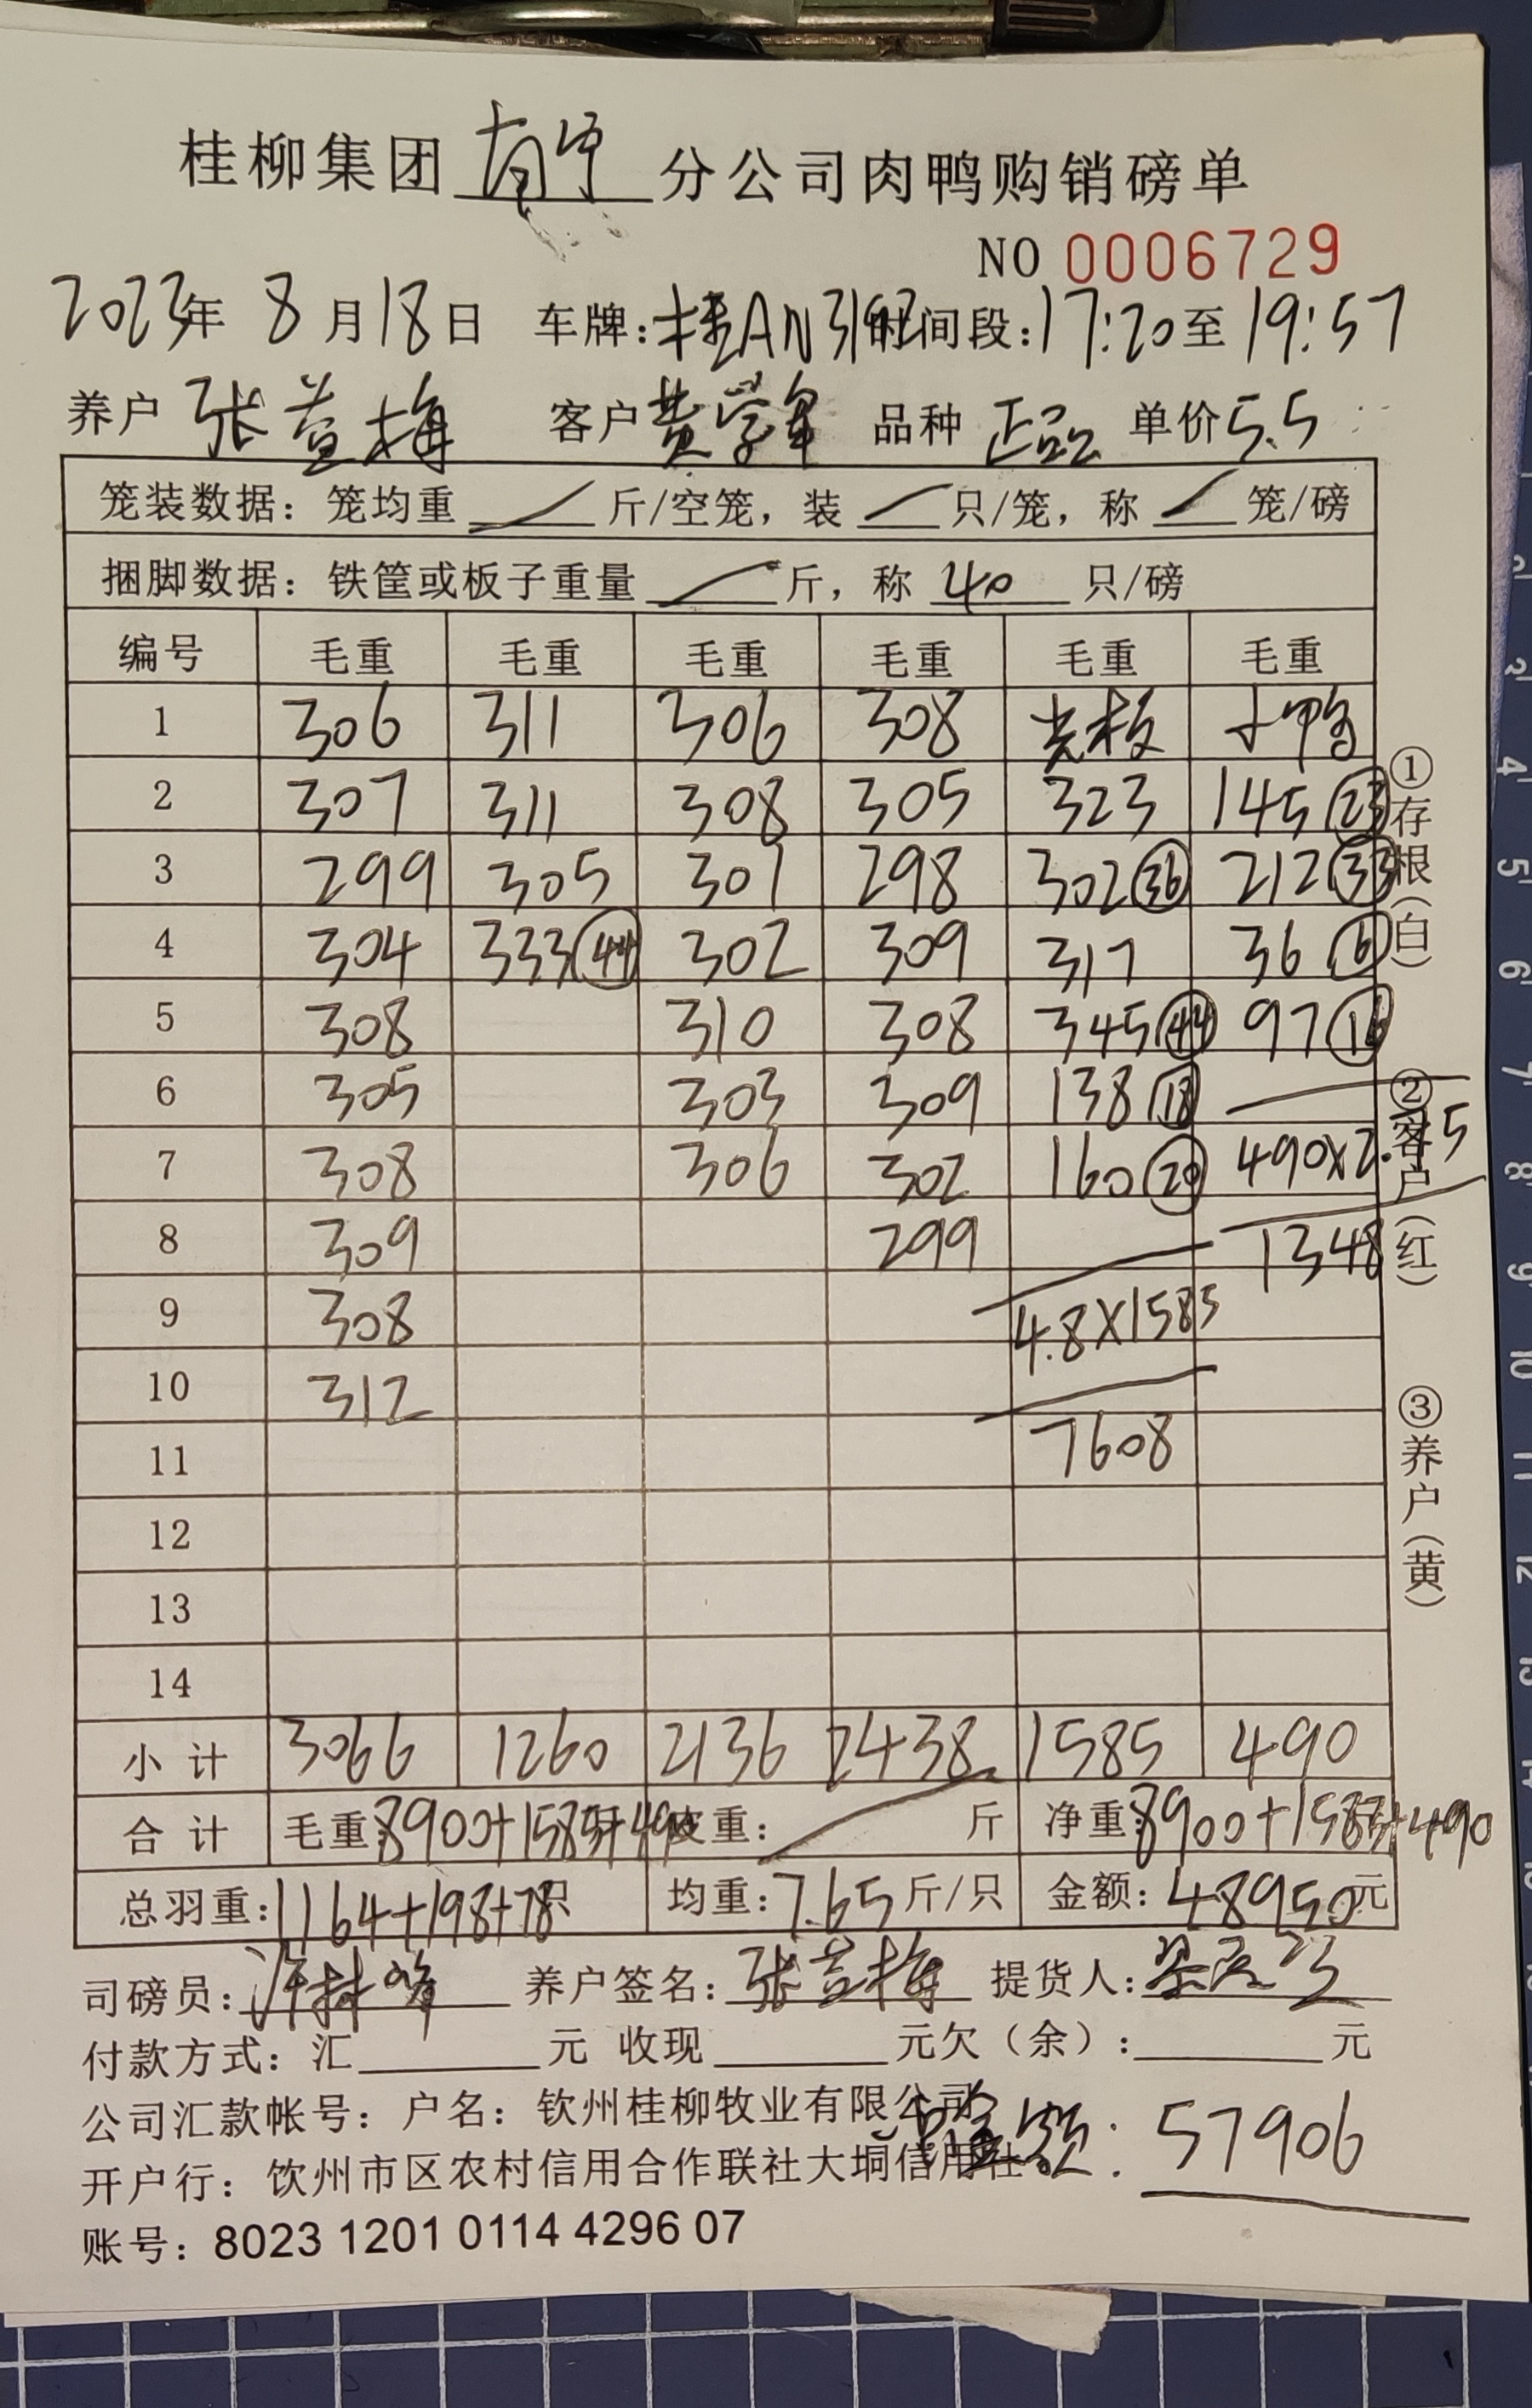 桂柳集团南宁分公司肉鸭购销磅单
NO 0006729
2023年 8月18日 车牌:桂AN3192时间段:17:20至19:57
养户 张益梅 客户黄学军 品种 正品 单价5.5
笼装数据：笼均重 / 斤/空笼，装 / 只/笼，称 / 笼/磅
捆脚数据：铁筐或板子重量 / 斤，称 40 只/磅
编号 毛重 毛重 毛重 毛重 毛重 毛重
1 306 311 306 308 光板 小鸭
2 307 311 308 305 323 145 23
3 299 305 301 298 302 36 212 33
4 304 333 44 302 309 317 36 6
5 308 310 308 345 44 97 16
6 305 303 309 138 18
7 308 306 302 160 20 490×2.75
8 309 299 1348
9 308 4.8×1585
10 312
11 7608
12
13
14
小计 3066 1260 2136 2438 1585 490
合计 毛重:8900+1585+490 皮重: / 斤 净重:8900+1585+490
总羽重:1164+198+78只 均重:7.65斤/只 金额:48950元
司磅员:许林峰 养户签名:张益梅 提货人:
付款方式：汇 元 收现 元欠（余）: 元
公司汇款帐号：户名：钦州桂柳牧业有限公司
开户行：饮州市区农村信用合作联社大垌信用社
总金额: 57906
账号：8023 1201 0114 4296 07
①存根（白）
②客户（红）
③养户（黄）